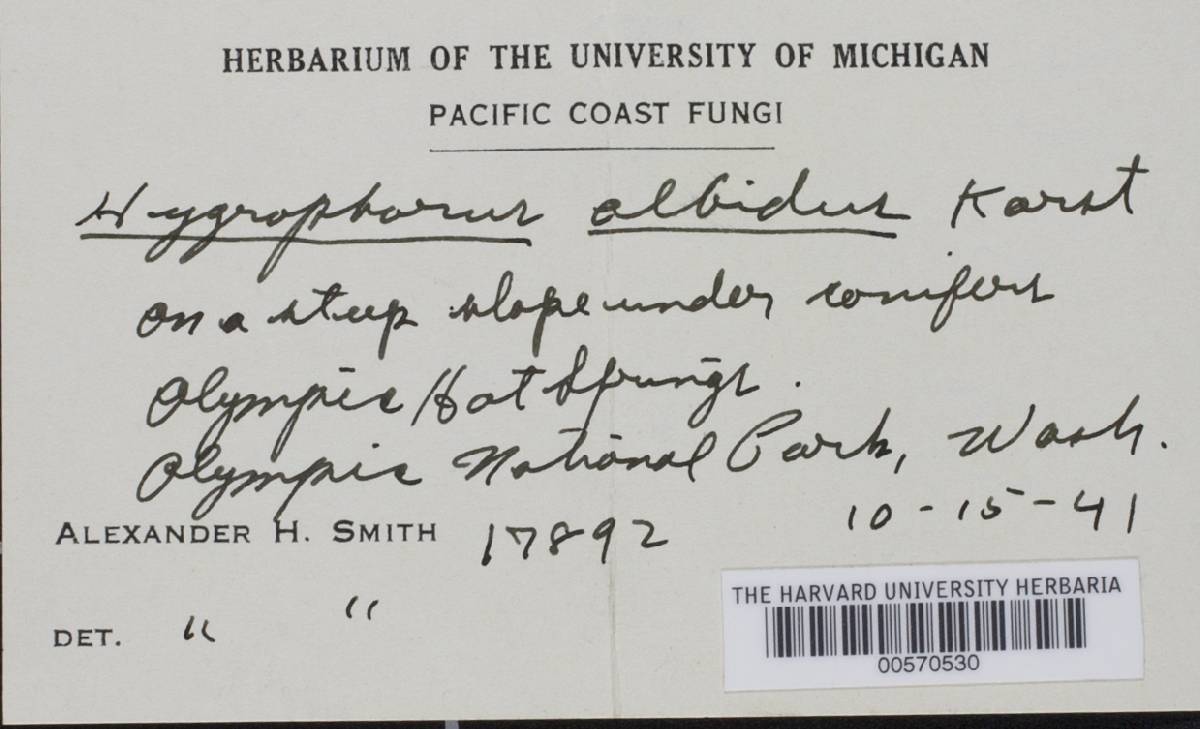 HERBARIUM OF THE UNIVERSITY OF MICHIGAN
PACIFIC COAST FUNGI
Hygrophorus albidus Karst
on a steep slope under conifers
Olympic Hot Springs.
Olympic National Park, Wash.
ALEXANDER H. SMITH 17892 10-15-41
DET. " "
THE HARVARD UNIVERSITY HERBARIA
00570530